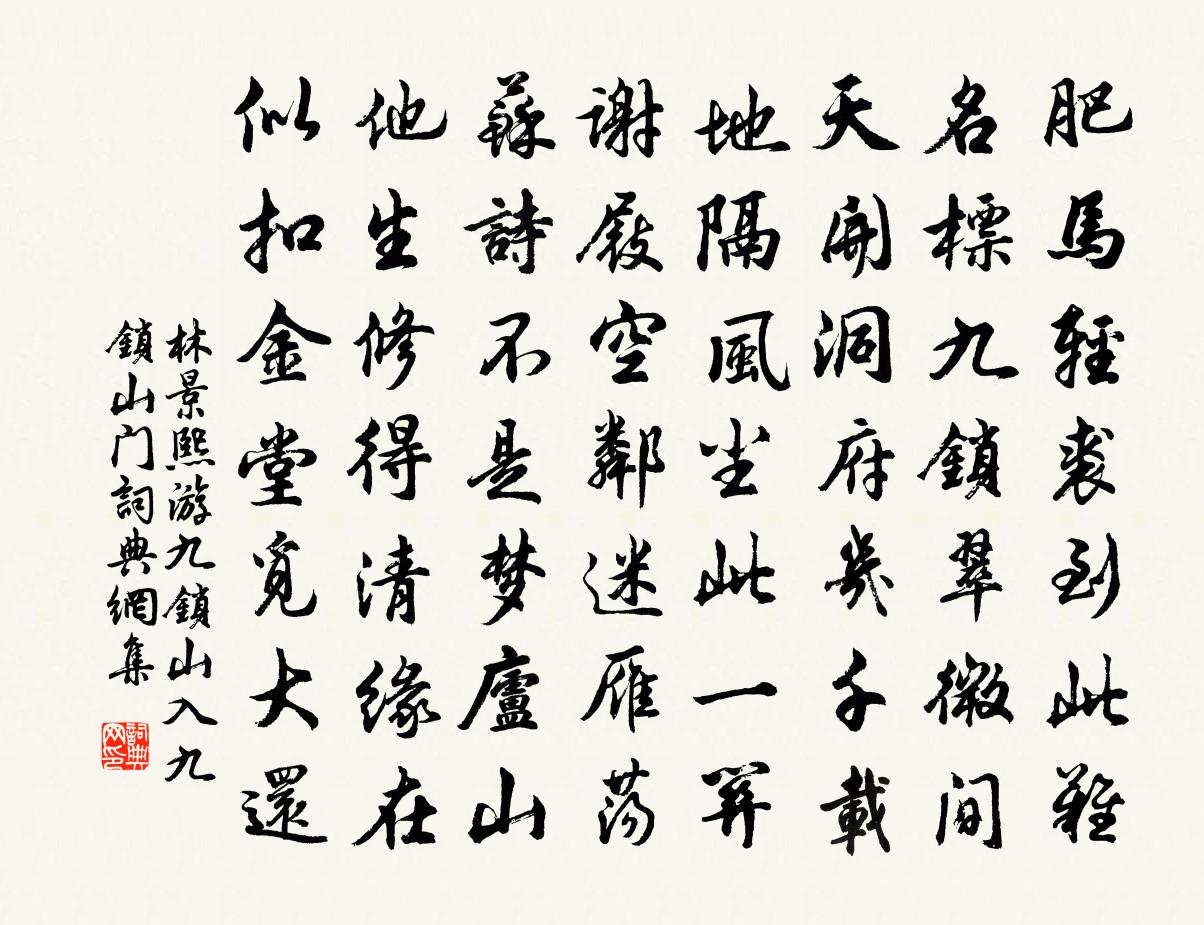 肥馬輕裘到此難
名標九鎖翠微間
天開洞府幾千載
地隔風塵此一關
謝屐空鄰迷雁蕩
蘇詩不是梦廬山
他生修得清緣在
似扣金堂覓大還
林景熙游九鎖山入九
鎖山门詞典網集
詞典
网印